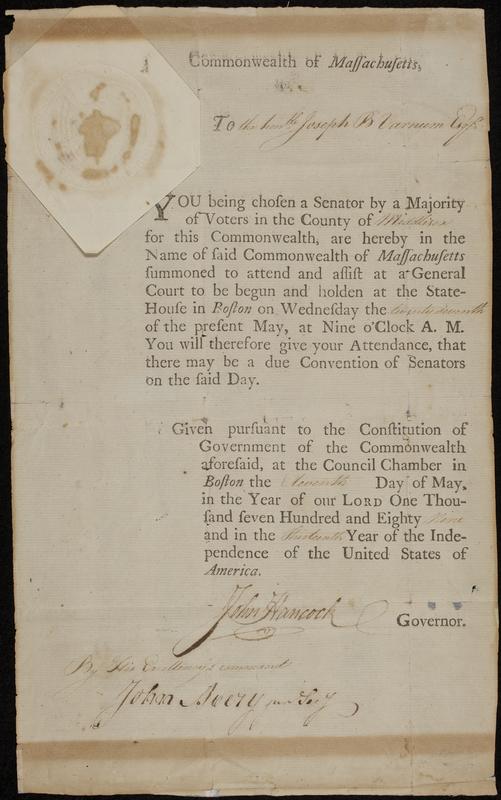 Commonwealth of Maſſachuſetts,
To the honble Joseph B Varnum Esqr.
YOU being choſen a Senator by a Majority
of Voters in the County of Middlesex
for this Commonwealth, are hereby in the
Name of ſaid Commonwealth of Maſſachuſetts
ſummoned to attend and aſſiſt at a General
Court to be begun and holden at the State-
Houſe in Boſton on Wedneſday the twenty seventh
of the preſent May, at Nine o'Clock A. M.
You will therefore give your Attendance, that
there may be a due Convention of Senators
on the ſaid Day.
Given purſuant to the Conſtitution of
Government of the Commonwealth
aforeſaid, at the Council Chamber in
Boſton the eleventh Day of May,
in the Year of our LORD One Thou-
ſand ſeven Hundred and Eighty nine
and in the thirteenth Year of the Inde-
pendence of the United States of
America.
John Hancock
Governor.
By His Excellency's command
John Avery junr Secy